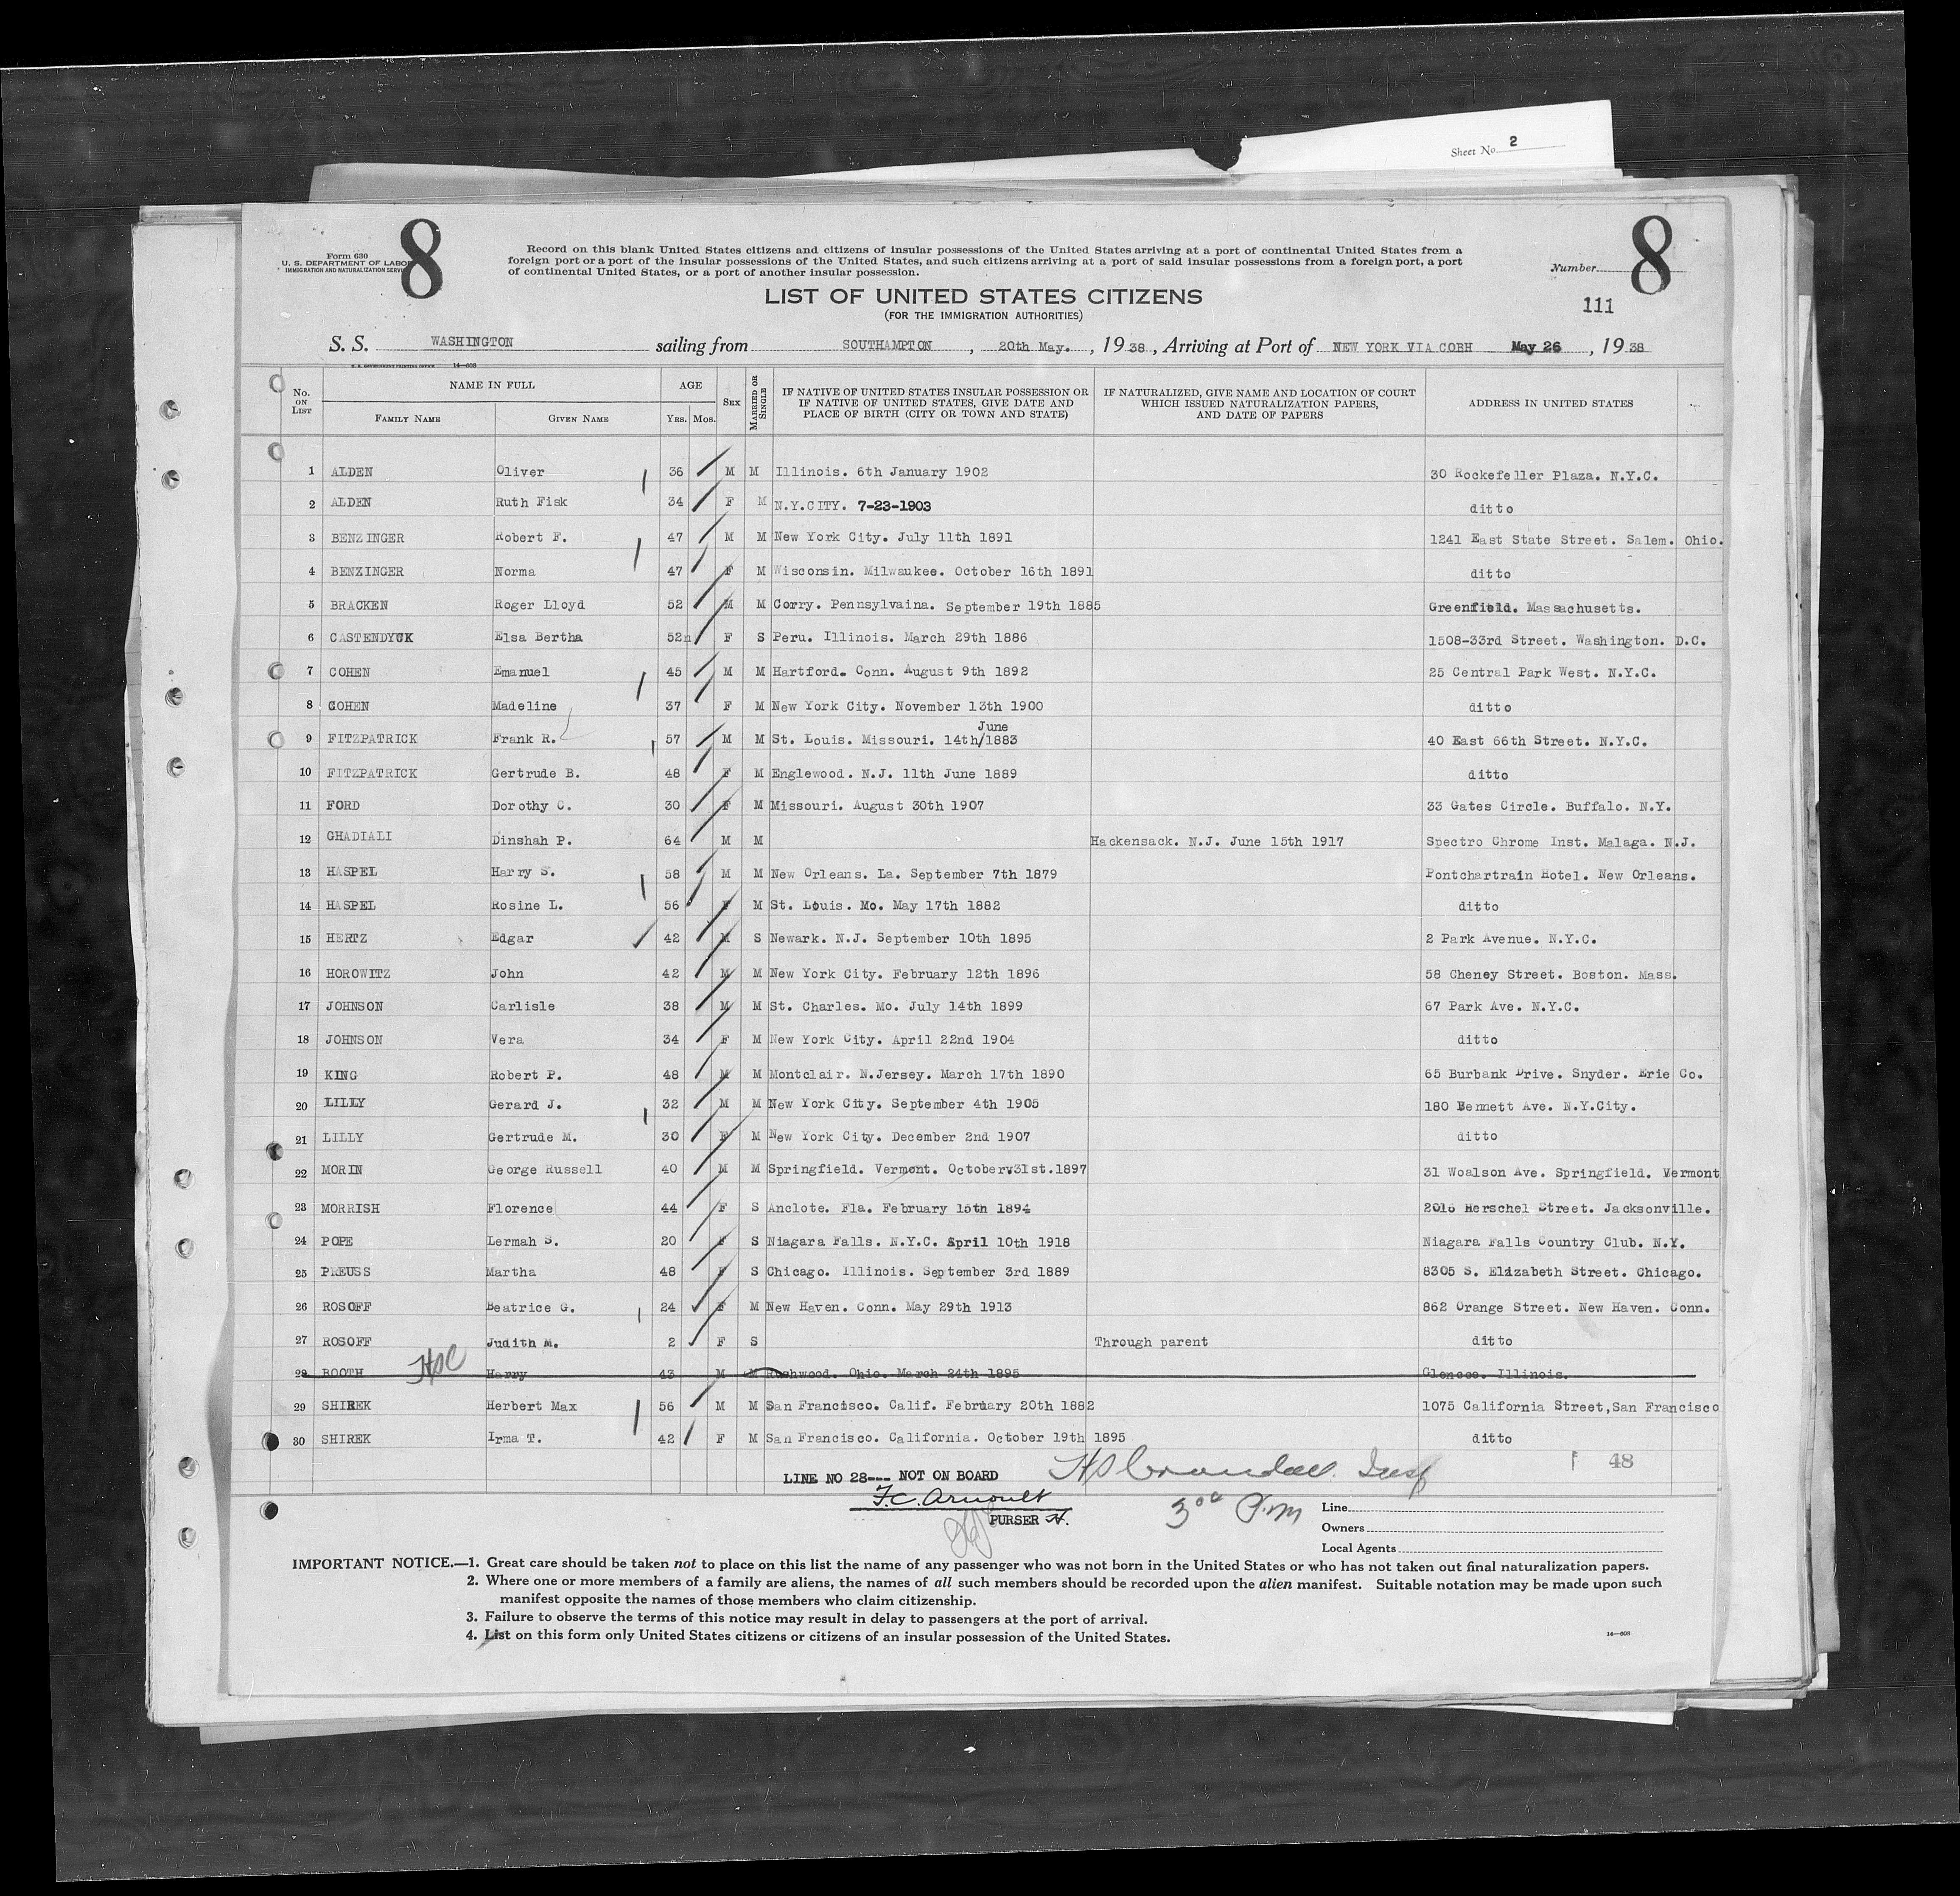 Sheet No. 2
8
8
Form 630
U. S. DEPARTMENT OF LABOR
IMMIGRATION AND NATURALIZATION SERVICE
Record on this blank United States citizens and citizens of insular possessions of the United States arriving at a port of continental United States from a
foreign port or a port of the insular possessions of the United States, and such citizens arriving at a port of said insular possessions from a foreign port, a port
of continental United States, or a port of another insular possession.
Number
111
LIST OF UNITED STATES CITIZENS
(FOR THE IMMIGRATION AUTHORITIES)
S. S. WASHINGTON sailing from SOUTHAMPTON , 20th May. , 1938 , Arriving at Port of NEW YORK VIA COBH May 26 , 1938
U. S. GOVERNMENT PRINTING OFFICE 14—608
No. ON LIST NAME IN FULL AGE SEX MARRIED OR SINGLE IF NATIVE OF UNITED STATES INSULAR POSSESSION OR IF NATIVE OF UNITED STATES, GIVE DATE AND PLACE OF BIRTH (CITY OR TOWN AND STATE) IF NATURALIZED, GIVE NAME AND LOCATION OF COURT WHICH ISSUED NATURALIZATION PAPERS, AND DATE OF PAPERS ADDRESS IN UNITED STATES
FAMILY NAME GIVEN NAME YRS. MOS.
1 ALDEN Oliver 36 M M Illinois. 6th January 1902 30 Rockefeller Plaza. N.Y.C.
2 ALDEN Ruth Fisk 34 F M N.Y.CITY. 7-23-1903 ditto
3 BENZINGER Robert F. 47 M M New York City. July 11th 1891 1241 East State Street. Salem. Ohio.
4 BENZINGER Norma 47 F M Wisconsin. Milwaukee. October 16th 1891 ditto
5 BRACKEN Roger Lloyd 52 M M Corry. Pennsylvaina. September 19th 1885 Greenfield. Massachusetts.
6 CASTENDYCK Elsa Bertha 52 F S Peru. Illinois. March 29th 1886 1508-33rd Street. Washington. D.C.
7 COHEN Emanuel 45 M M Hartford. Conn. August 9th 1892 25 Central Park West. N.Y.C.
8 COHEN Madeline 37 F M New York City. November 13th 1900 ditto
9 FITZPATRICK Frank R. 57 M M St. Louis. Missouri. 14th/June 1883 40 East 66th Street. N.Y.C.
10 FITZPATRICK Gertrude B. 48 F M Englewood. N.J. 11th June 1889 ditto
11 FORD Dorothy C. 30 F M Missouri. August 30th 1907 33 Gates Circle. Buffalo. N.Y.
12 GHADIALI Dinshah P. 64 M M Hackensack. N.J. June 15th 1917 Spectro Chrome Inst. Malaga. N.J.
13 HASPEL Harry S. 58 M M New Orleans. La. September 7th 1879 Pontchartrain Hotel. New Orleans.
14 HASPEL Rosine L. 56 F M St. Louis. Mo. May 17th 1882 ditto
15 HERTZ Edgar 42 M S Newark. N.J. September 10th 1895 2 Park Avenue. N.Y.C.
16 HOROWITZ John 42 M M New York City. February 12th 1896 58 Cheney Street. Boston. Mass.
17 JOHNSON Carlisle 38 M M St. Charles. Mo. July 14th 1899 67 Park Ave. N.Y.C.
18 JOHNSON Vera 34 F M New York City. April 22nd 1904 ditto
19 KING Robert P. 48 M M Montclair. N.Jersey. March 17th 1890 65 Burbank Drive. Snyder. Erie Co.
20 LILLY Gerard J. 32 M M New York City. September 4th 1905 180 Bennett Ave. N.Y.City.
21 LILLY Gertrude M. 30 F M New York City. December 2nd 1907 ditto
22 MORIN George Russell 40 M M Springfield. Vermont. October 31st.1897 31 Woalson Ave. Springfield. Vermont
23 MORRISH Florence 44 F S Anclote. Fla. February 15th 1894 2016 Herschel Street. Jacksonville.
24 POPE Lermah S. 20 F S Niagara Falls. N.Y.C. April 10th 1918 Niagara Falls Country Club. N.Y.
25 PREUSS Martha 48 F S Chicago. Illinois. September 3rd 1889 8305 S. Elizabeth Street. Chicago.
26 ROSOFF Beatrice G. 24 F M New Haven. Conn. May 29th 1913 862 Orange Street. New Haven. Conn.
27 ROSOFF Judith M. 2 F S Through parent ditto
28 BOOTH HSC Harry 43 M M Rushwood. Ohio. March 24th 1895 Glencoe. Illinois.
29 SHIREK Herbert Max 56 M M San Francisco. Calif. February 20th 1882 1075 California Street,San Francisco
30 SHIREK Irma T. 42 F M San Francisco. California. October 19th 1895 ditto
LINE NO 28--- NOT ON BOARD HS Crandall. Insp 48
F.C. Arnoult
PURSER
3 00 P.m
Line
Owners
Local Agents
IMPORTANT NOTICE.—1. Great care should be taken not to place on this list the name of any passenger who was not born in the United States or who has not taken out final naturalization papers.
2. Where one or more members of a family are aliens, the names of all such members should be recorded upon the alien manifest. Suitable notation may be made upon such
manifest opposite the names of those members who claim citizenship.
3. Failure to observe the terms of this notice may result in delay to passengers at the port of arrival.
4. List on this form only United States citizens or citizens of an insular possession of the United States.
14—608